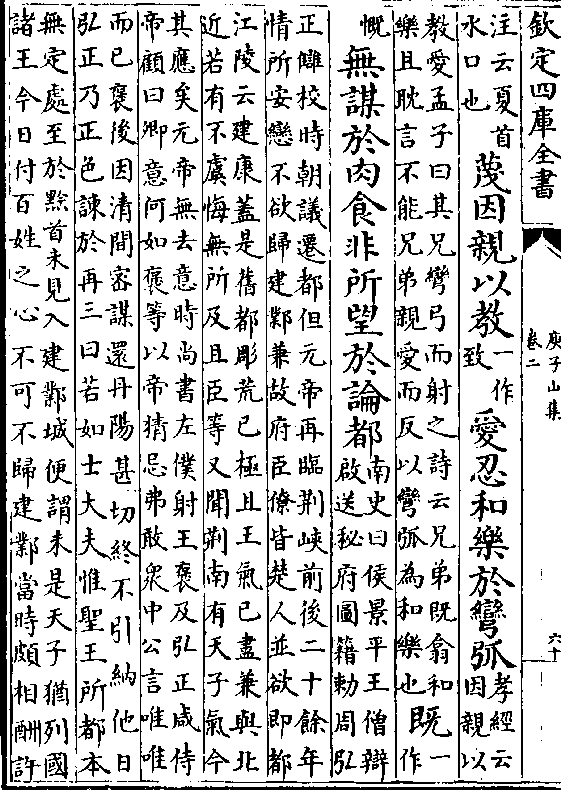 欽定四庫全書
庾子山集
卷二
六十
注云夏首
水口也
蔑因親以教
一作
致
愛忍和樂於彎弧
孝經云
因親以
教愛孟子曰其兄彎弓而射之詩云兄弟既翕和
樂且耽言不能兄弟親愛而反以彎弧為和樂也
既
一
作
慨
無謀於肉食非所望於論都
南史曰侯景平王僧辯
啟送秘府圖籍勅周弘
正讎校時朝議遷都但元帝再臨荆峽前後二十餘年
情所安戀不欲歸建鄴兼故府臣僚皆楚人並欲即都
江陵云建康蓋是舊都彫荒已極且王氣已盡兼與北
近若有不虞悔無所及且臣等又聞荆南有天子氣今
其應矣元帝無去意時尚書左僕射王褒及弘正咸侍
帝顧曰卿意何如褒等以帝猜忌弗敢衆中公言唯唯
而已褒後因清閒密謀還丹陽甚切終不引納他日
弘正乃正色諫於再三曰若如士大夫惟聖王所都本
無定處至於黔首未見入建鄴城便謂未是天子猶列國
諸王今日付百姓之心不可不歸建鄴當時頗相酬許